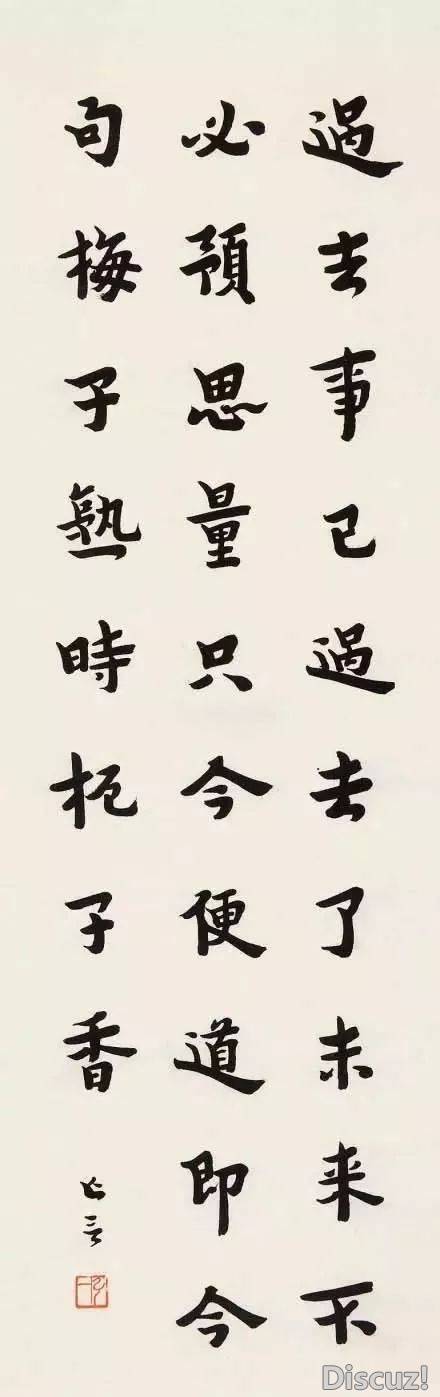 過去事已過去了未来不
必預思量只今便道即今
句梅子熟時栀子香
Discuz!